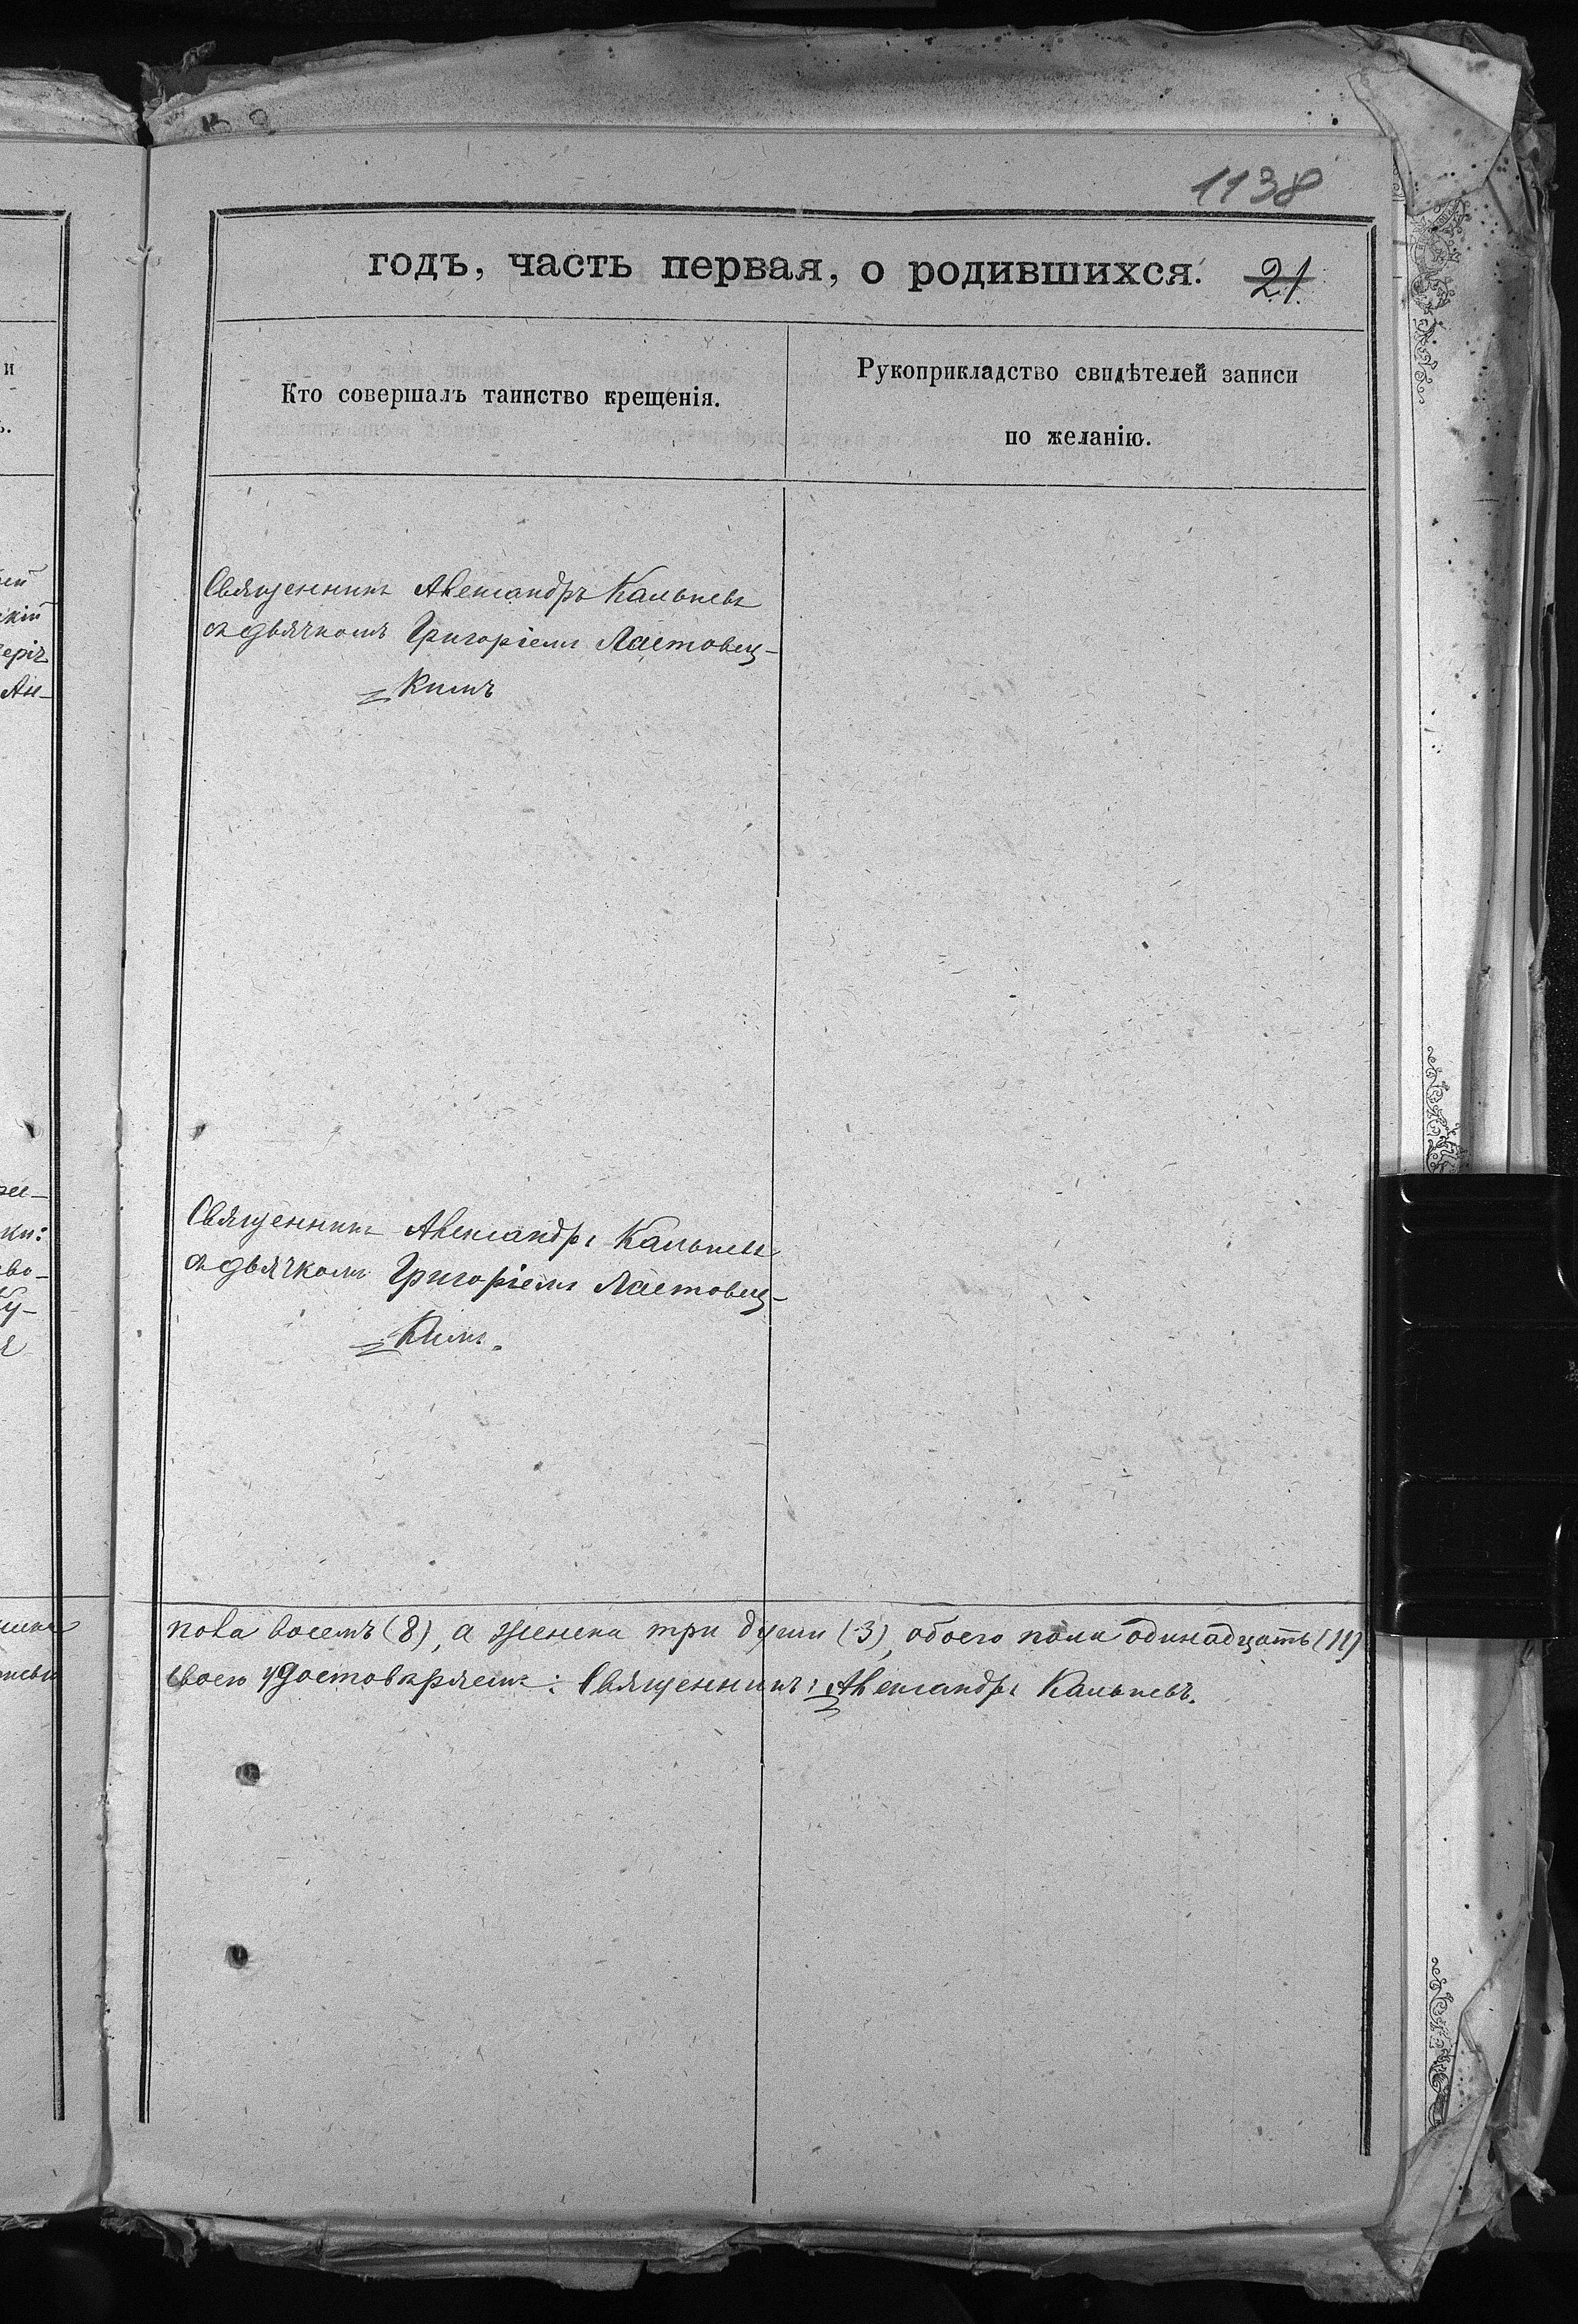 1138
годъ, часть первая, о родившихся. 21
Кто совершалъ таинство крещенія.
Рукоприкладство свидѣтелей записи
по желанію.
Священникъ Александръ Кальневъ
съ дьячкомъ Григоріемъ Ластовец-
кимъ
Священникъ Александръ Кальневъ
съ дьячкомъ Григоріемъ Ластовец-
кимъ.
пола восемъ (8), а женска три души (3), обоего пола одинадцать (11)
своею удостовѣряемъ: Священникъ Александръ Кальневъ.